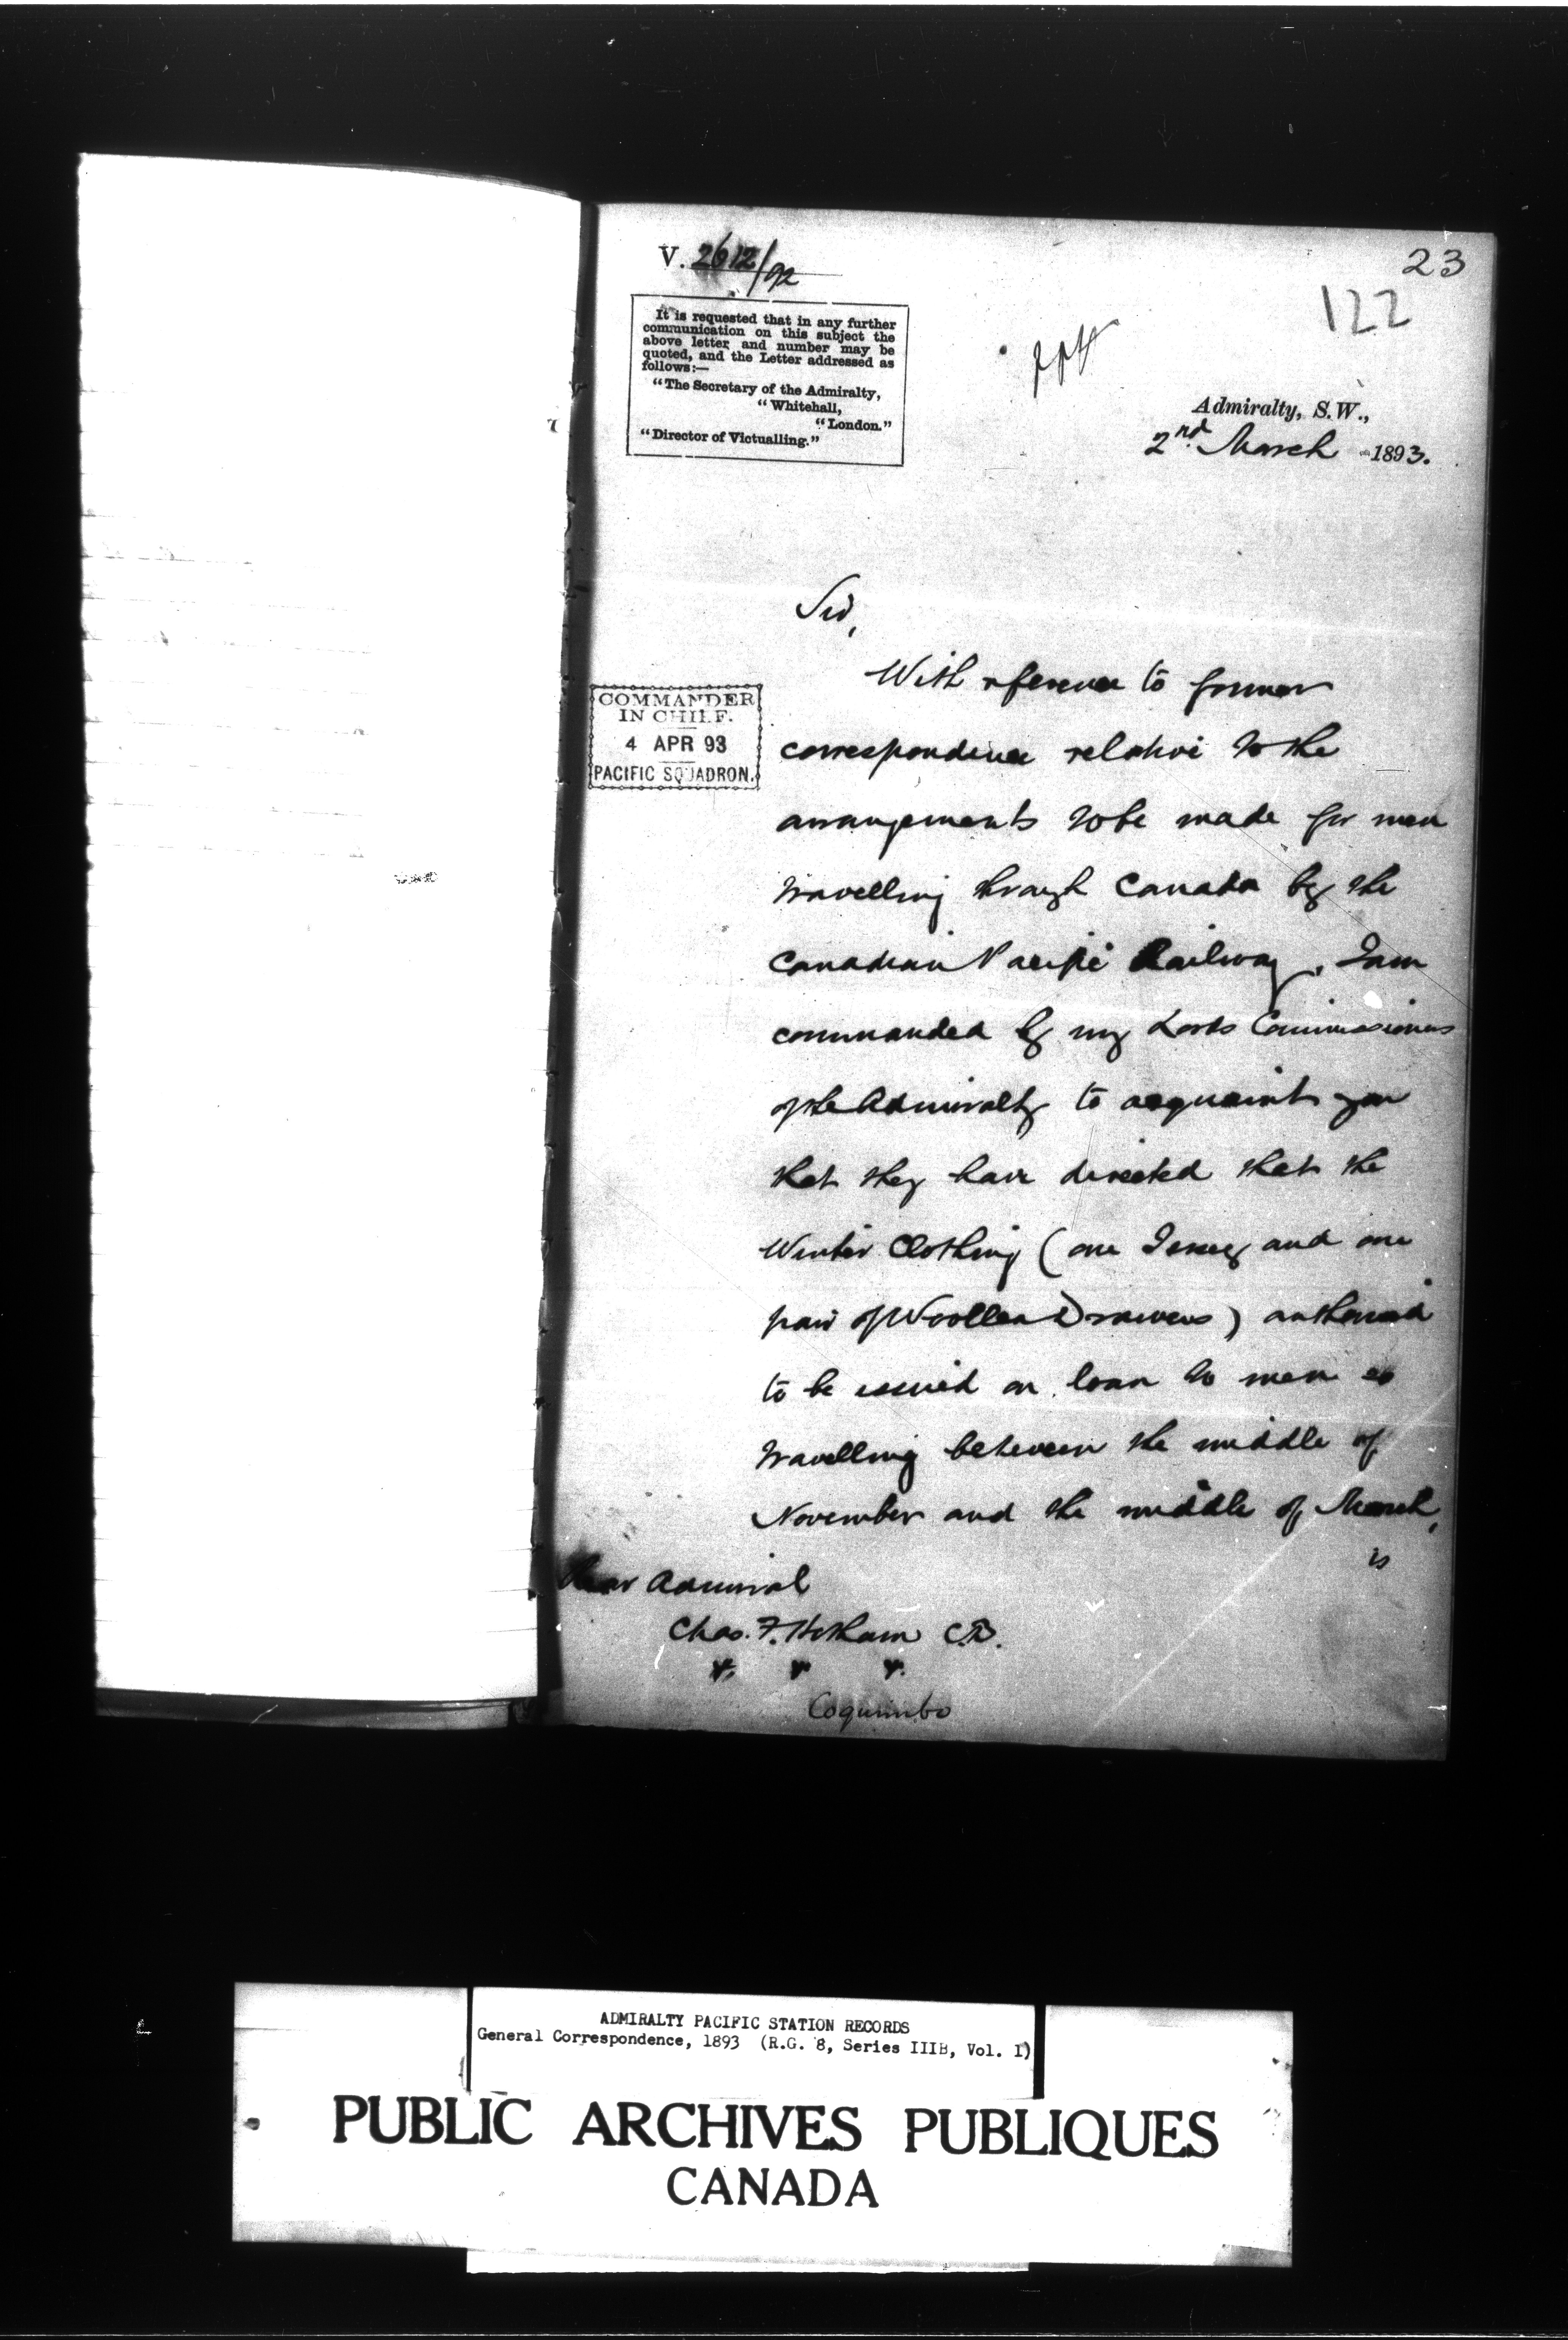 23
122
V. 2612/92
It is requested that in any further
communication on this subject the
above letter and number may be
quoted, and the Letter addressed as
follows:—
"The Secretary of the Admiralty,
"Whitehall,
"London."
"Director of Victualling."
Admiralty, S.W.,
2nd March 1893.
Sir,
With reference to former
correspondence relative to the
arrangements to be made for men
travelling through Canada by the
Canadian Pacific Railway, I am
commanded by my Lords Commissioners
of the Admiralty to acquaint you
that they have directed that the
Winter Clothing (one Jersey and one
pair of Woollen Drawers) authorised
to be issued on loan to men so
travelling between the middle of
November and the middle of March,
is
COMMANDER
IN CHIEF.
4 APR 93
PACIFIC SQUADRON.
Rear Admiral
Chas. F. Hotham C.B.
Coquimbo
ADMIRALTY PACIFIC STATION RECORDS
General Correspondence, 1893 (R.G. 8, Series IIIB, Vol. 1)
PUBLIC ARCHIVES PUBLIQUES
CANADA